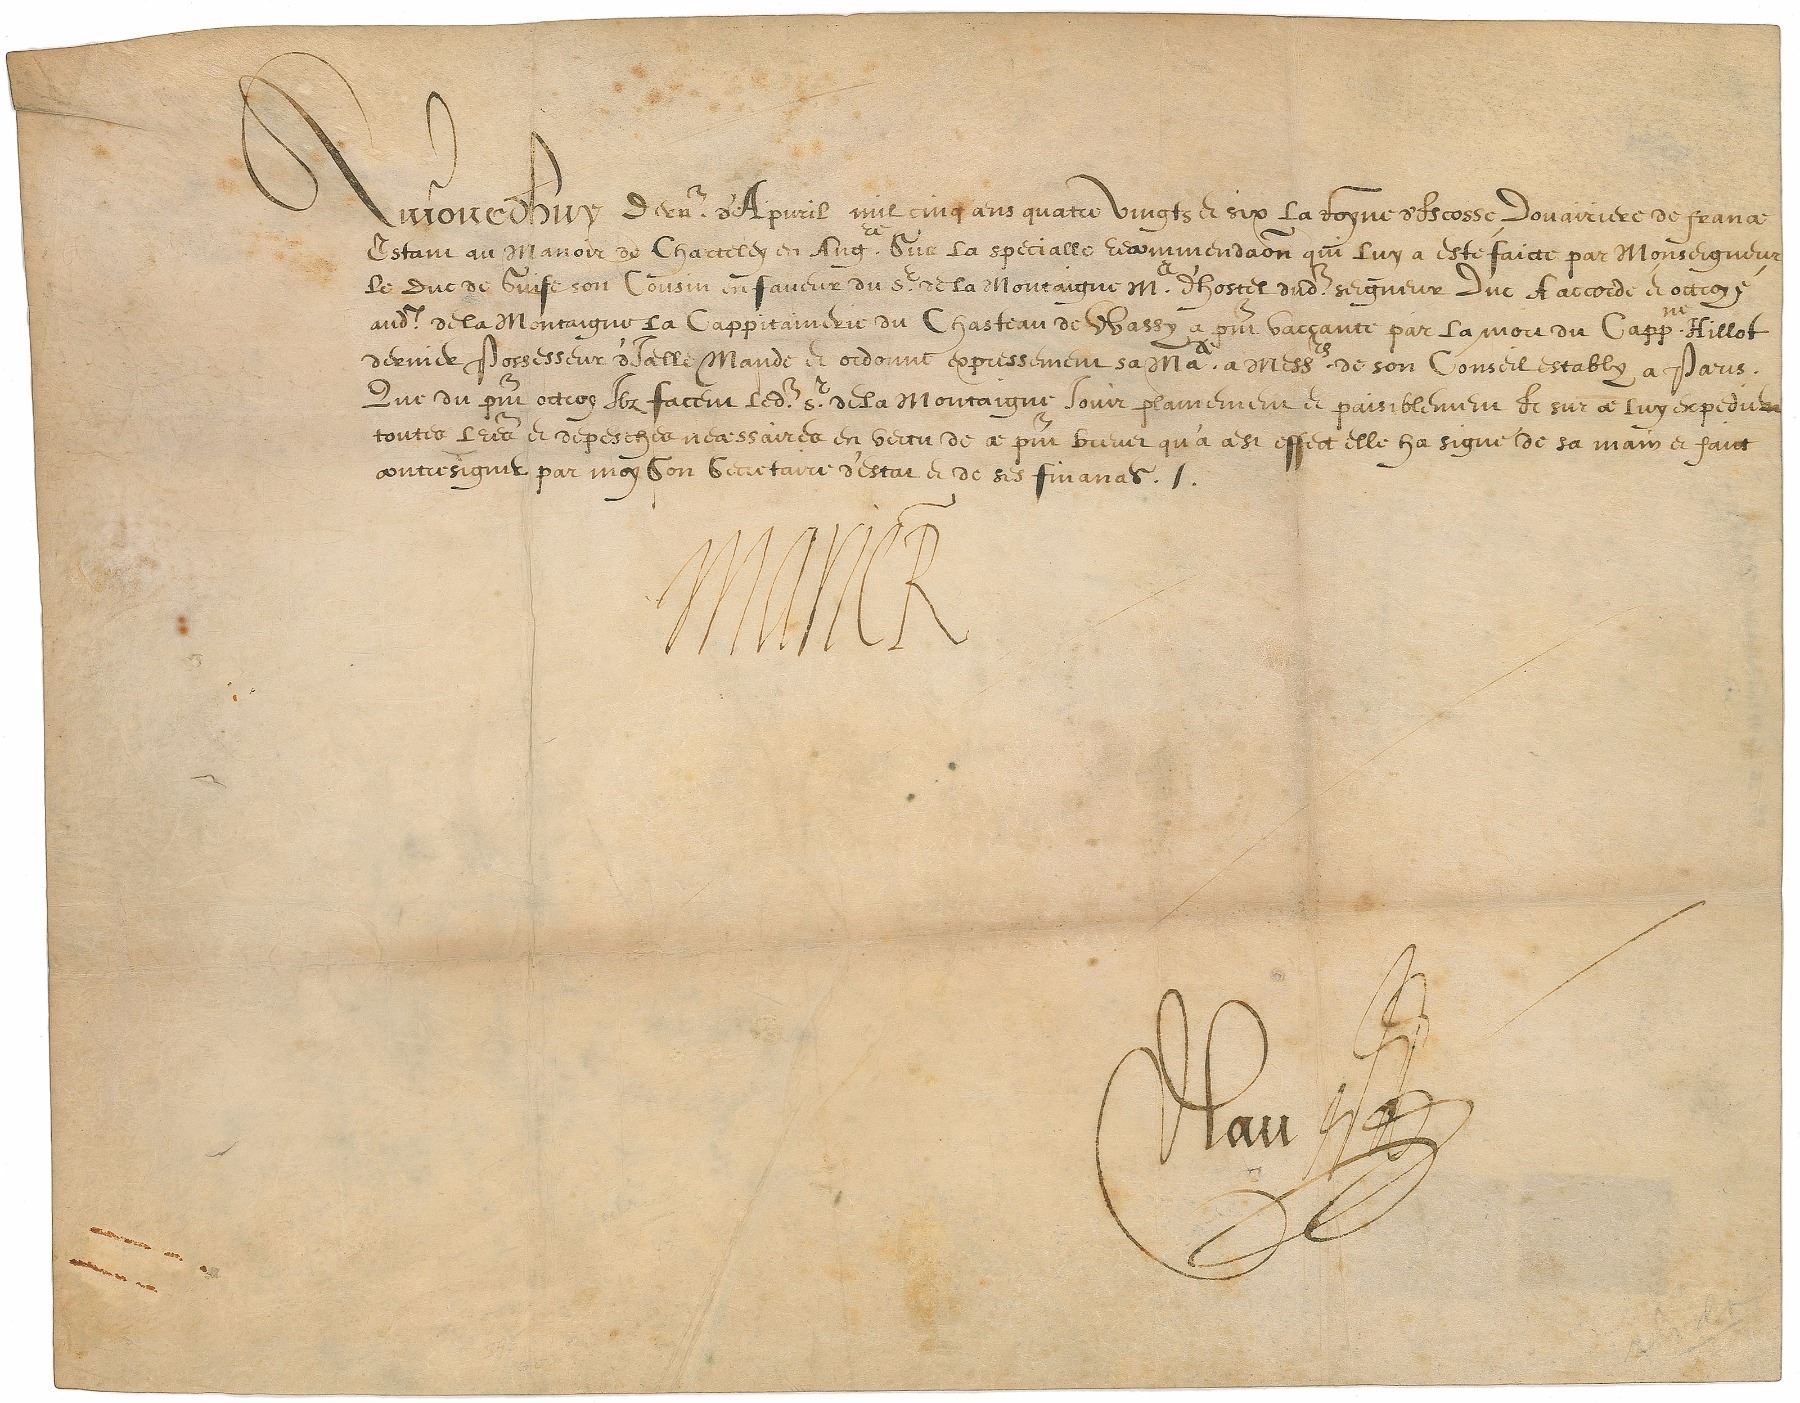 Aujourdhuy dern.r d'Apuril mil cinq cens quatre vingts et six La Royne d'Escosse Douairiere de france
Estant au Manoir de Charteley en Ang.re Sur La specialle recommendaōn qui luy a esté faicte par Monseigneur
Le Duc de Guise son Cousin en faveur du S.r de la Montaigne M.e d'hostel dud.t seigneur Duc A accordé et octroyé
aud.t de la Montaigne La Cappitainerie du Chasteau de Wassy a pn̄t vaccante par la mort du Capp.ne Hillot
dernier Possesseur d'Icelle Mande et ordonne expressement sa Ma.te a Mess.rs de son Conseil estably a Paris.
Que du pn̄t octroy Ilz facent led.t S.r de la Montaigne Jouir plainement et paisiblement Et sur ce luy expedient
toutes Lr̄es et depesches necessaires en vertu de ce pn̄t brevet qu'a cest effect elle ha signé de sa main et faict
contresigner par moy Son Secretaire d'estat et de ses finances. /.
Marie R
Nau